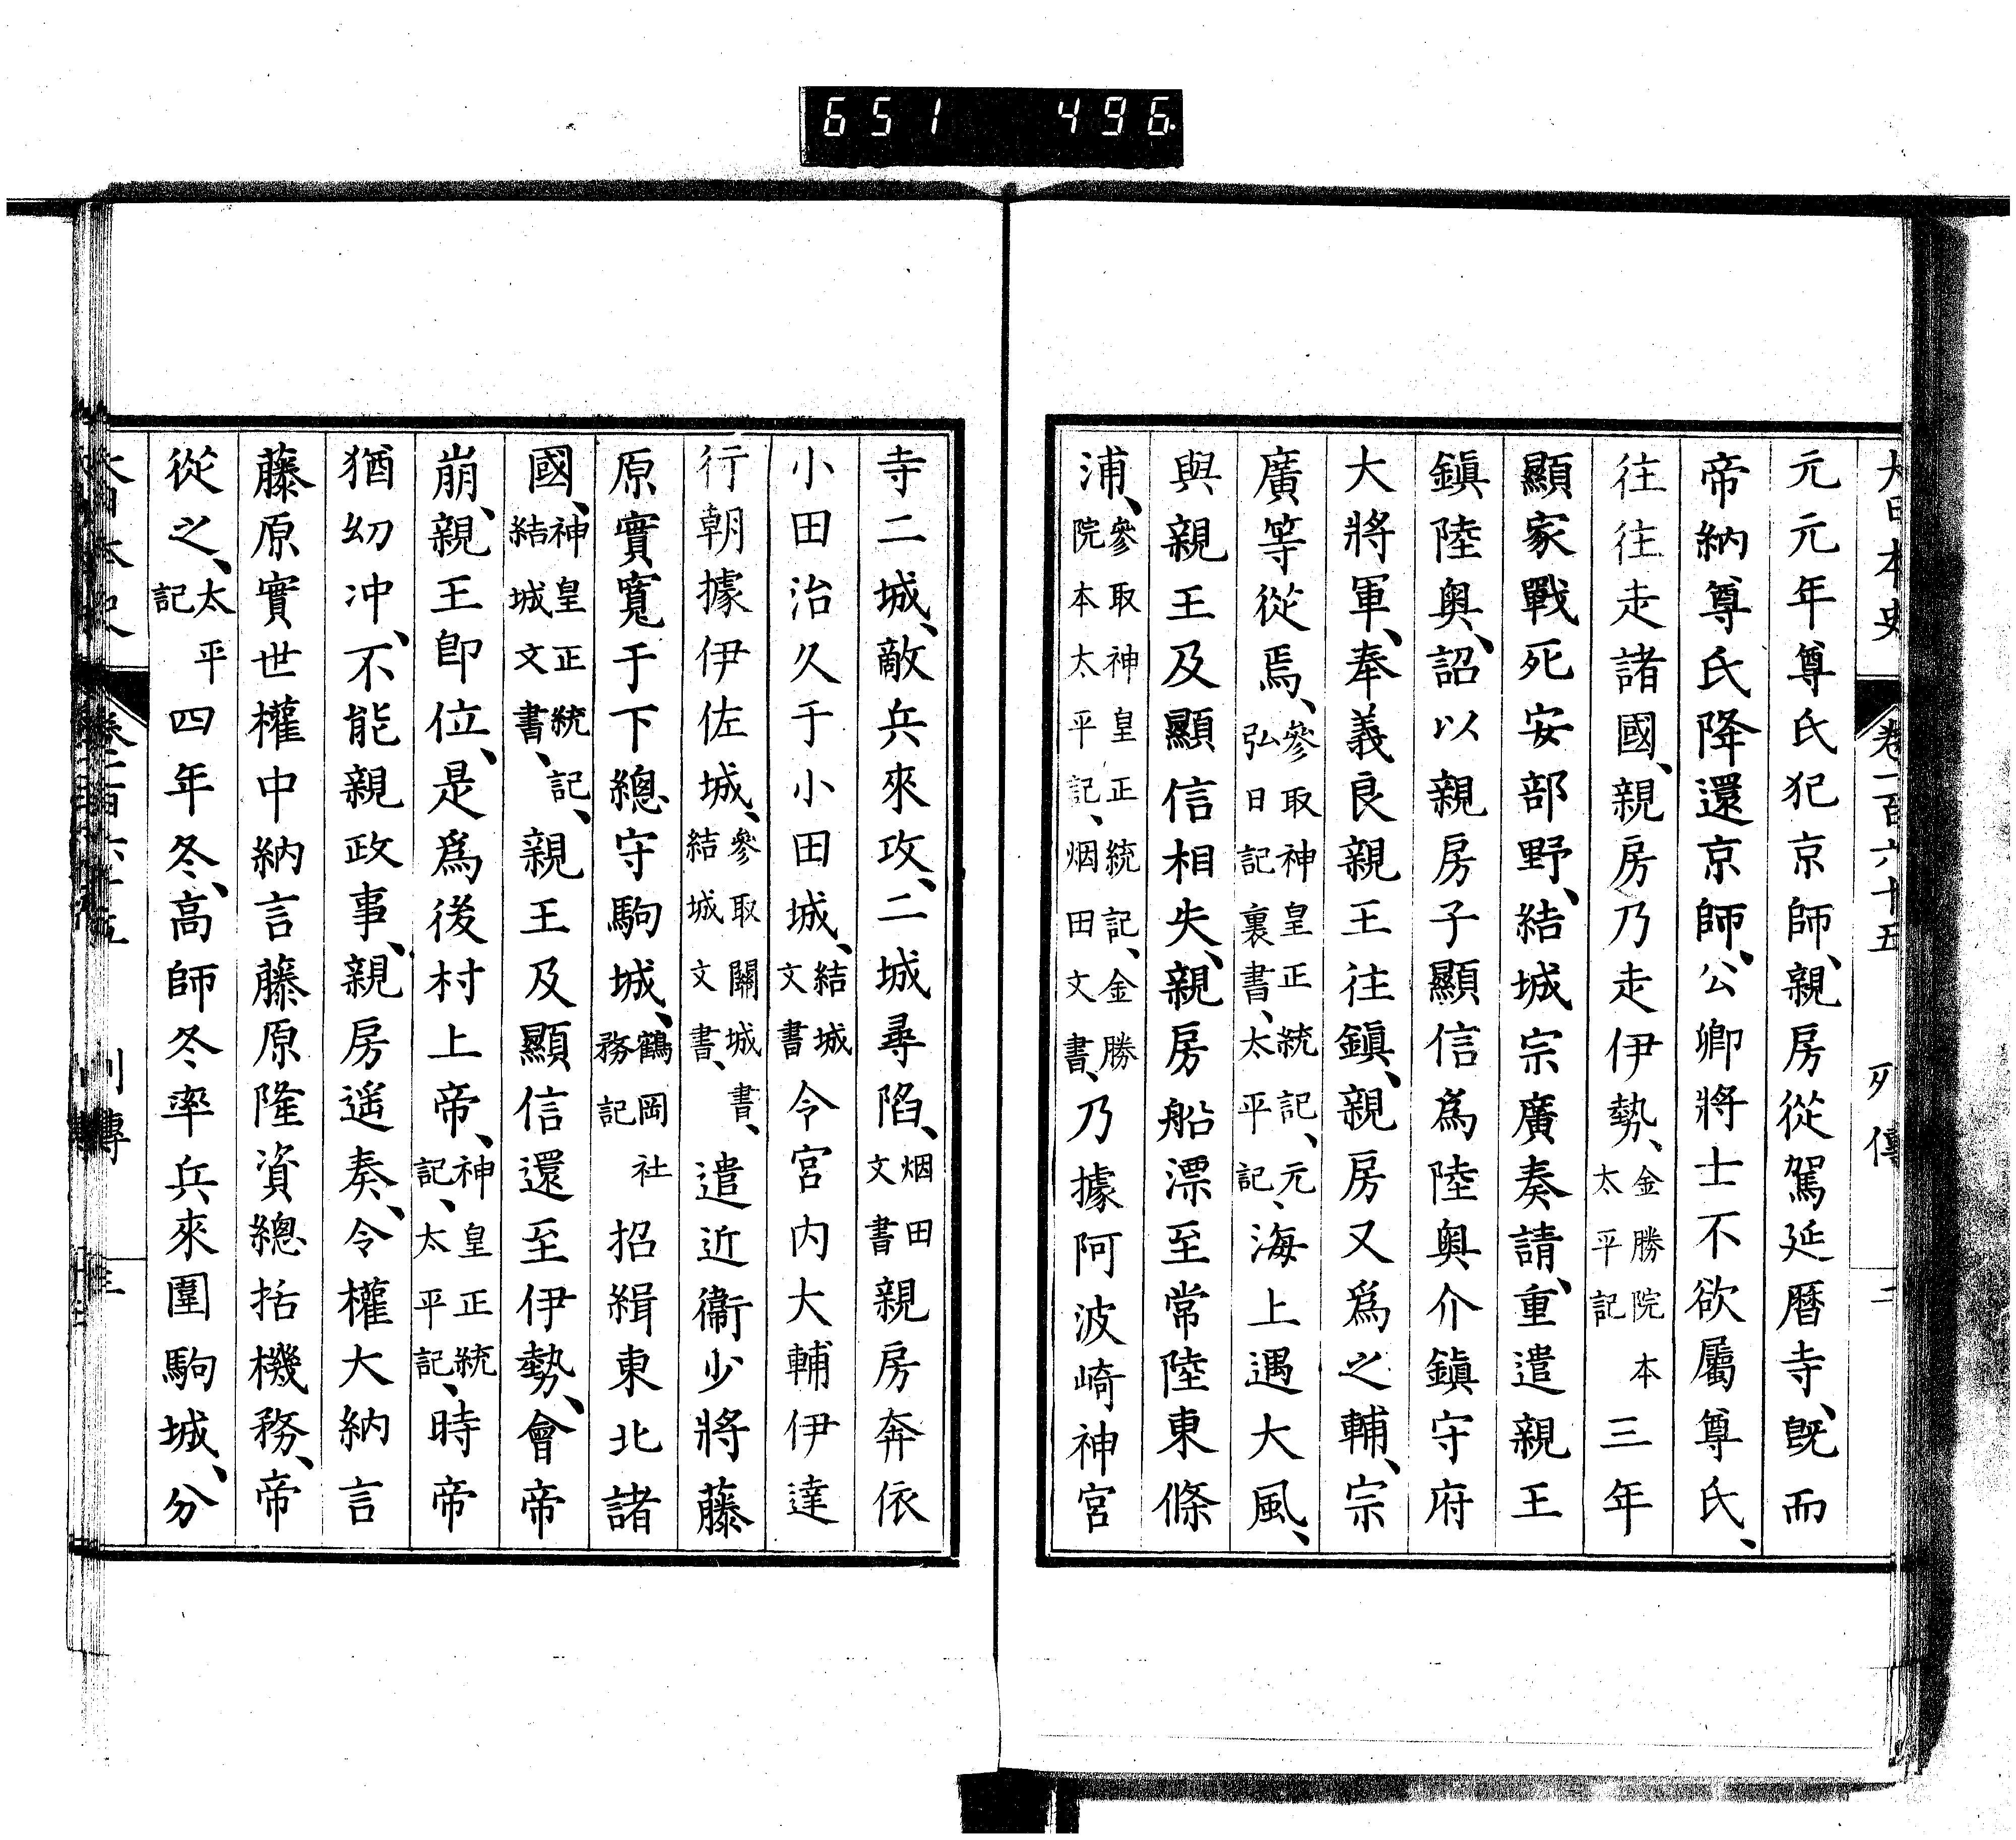 651 496
大日本史 卷一百六十五 列傳 二
元元年尊氏犯京師、親房從駕延曆寺、既而
帝納尊氏降還京師、公卿將士不欲屬尊氏、
往往走諸國、親房乃走伊勢、金勝院本太平記三年
顯家戰死安部野、結城宗廣奏請、重遣親王
鎮陸奧、詔以親房子顯信爲陸奧介鎮守府
大將軍、奉義良親王往鎮、親房又爲之輔、宗
廣等從焉、參取神皇正統記、元弘日記裏書、太平記、海上遇大風、
與親王及顯信相失、親房船漂至常陸東條
浦、參取神皇正統記、金勝院本太平記、烟田文書、乃據阿波崎神宮
寺二城、敵兵來攻、二城尋陷、烟田文書親房奔依
小田治久于小田城、結城文書令宮内大輔伊達
行朝據伊佐城、參取關城書、結城文書、遣近衞少將藤
原實寬于下總守駒城、鶴岡社務記招緝東北諸
國、神皇正統記、結城文書、親王及顯信還至伊勢、會帝
崩、親王卽位、是爲後村上帝、神皇正統記、太平記、時帝
猶幼冲、不能親政事、親房遥奏、令權大納言
藤原實世權中納言藤原隆資總括機務、帝
從之、太平記四年冬、高師冬率兵來圍駒城、分
大日本史 卷一百六十五 列傳 三